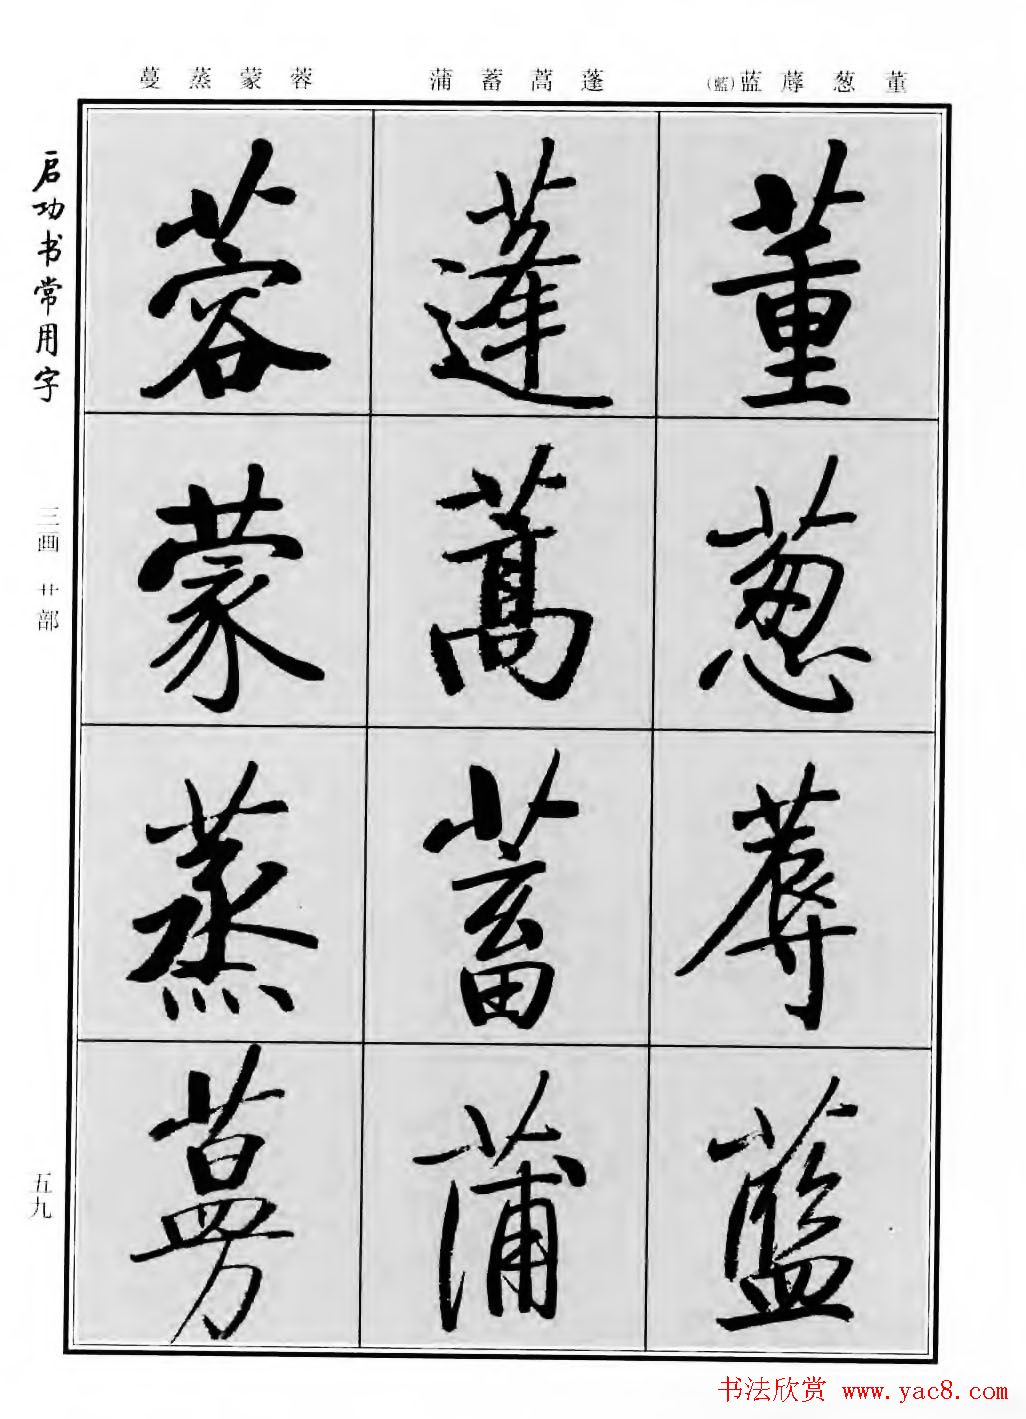 董葱蓐蓝(藍)
蓬蒿蓄蒲
蓉蒙蒸蔓
董葱蓐藍
蓬蒿蓄蒲
蓉蒙蒸蔓
启功书常用字
三画 艹部
五九
书法欣赏 www.yac8.com